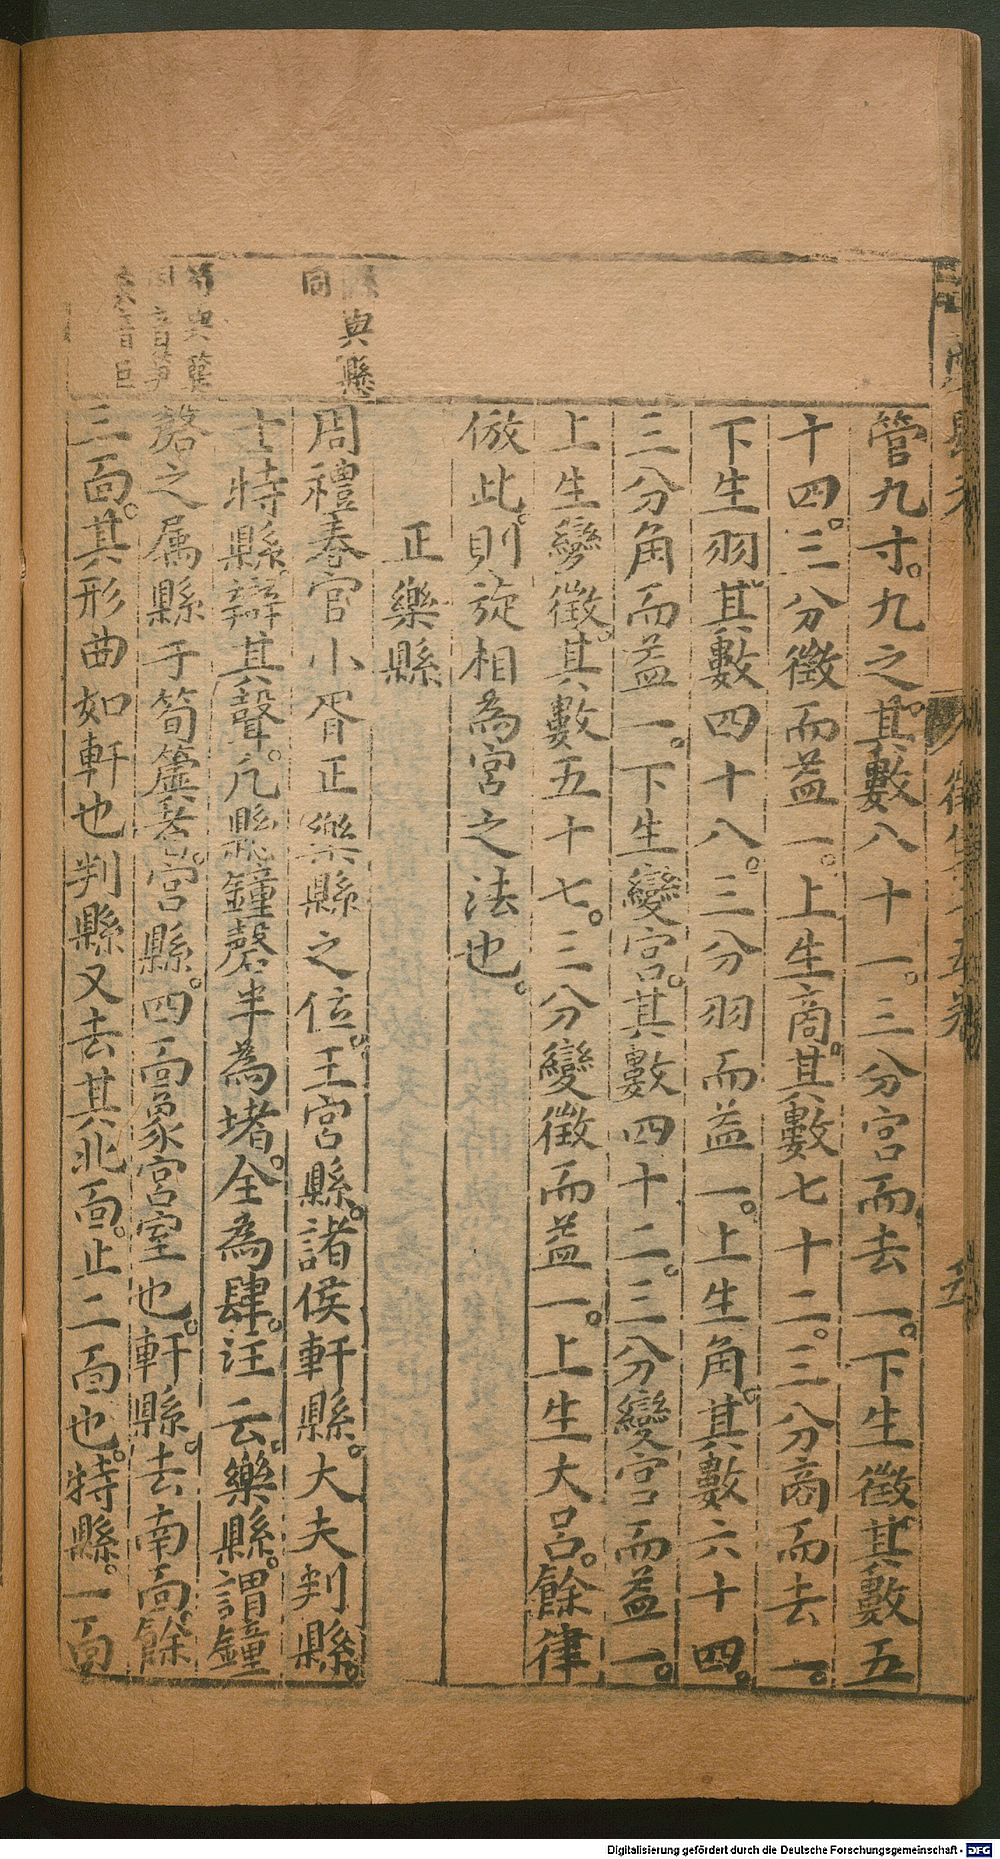 管九寸。九之。其數八十一。三分宮而去一。下生徵。其數五
十四。三分徵而益一。上生商。其數七十二。三分商而去一。
下生羽。其數四十八。三分羽而益一。上生角。其數六十四。
三分角而益一。下生變宮。其數四十二。三分變宮而益一。
上生變徵。其數五十七。三分變徵而益一。上生大呂。餘律
倣此。則旋相為宮之法也。
正樂縣
與縣
同
周禮春官小胥正樂縣之位。王宮縣。諸侯軒縣。大夫判縣。
士特縣。辯其聲。凡縣鐘磬。半為堵。全為肆。注云。樂縣。謂鐘
磬之属縣于筍簴者。宮縣。四面象宮室也。軒縣。去南面。餘
三面。其形曲如軒也判縣又去其北面。止二面也。特縣。一面
筍與
同音筍
音巨
Digitalisierung gefördert durch die Deutsche Forschungsgemeinschaft - DFG